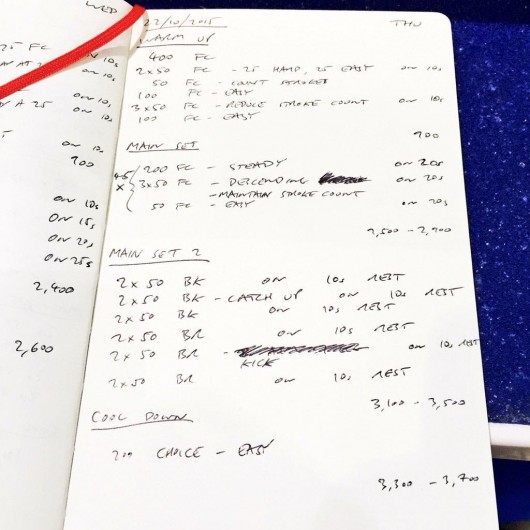 WED
25 FC
ON 10s
ON 10s
A 25 ON 10s
ON 10s
900
ON 10s
ON 15s
ON 20s
ON 25s
2,400
2,600
22/10/2015 THU
WARM UP
400 FC
2x50 FC - 25 HARD, 25 EASY ON 10s
50 FC - COUNT STROKES
100 FC - EASY
3x50 FC - REDUCE STROKE COUNT ON 10s
100 FC - EASY
900
MAIN SET
4-5 x
200 FC - STEADY ON 20s
3x50 FC - DESCENDING ON 20s
- MAINTAIN STROKE COUNT
50 FC - EASY ON 20s
2,500 - 2,900
MAIN SET 2
2x50 BK ON 10s REST
2x50 BK - CATCH UP ON 10s REST
2x50 BK ON 10s REST
2x50 BR ON 10s REST
2x50 BR - KICK ON 10s REST
2x50 BR ON 10s REST
3,100 - 3,500
COOL DOWN
200 CHOICE - EASY
3,300 - 3,700